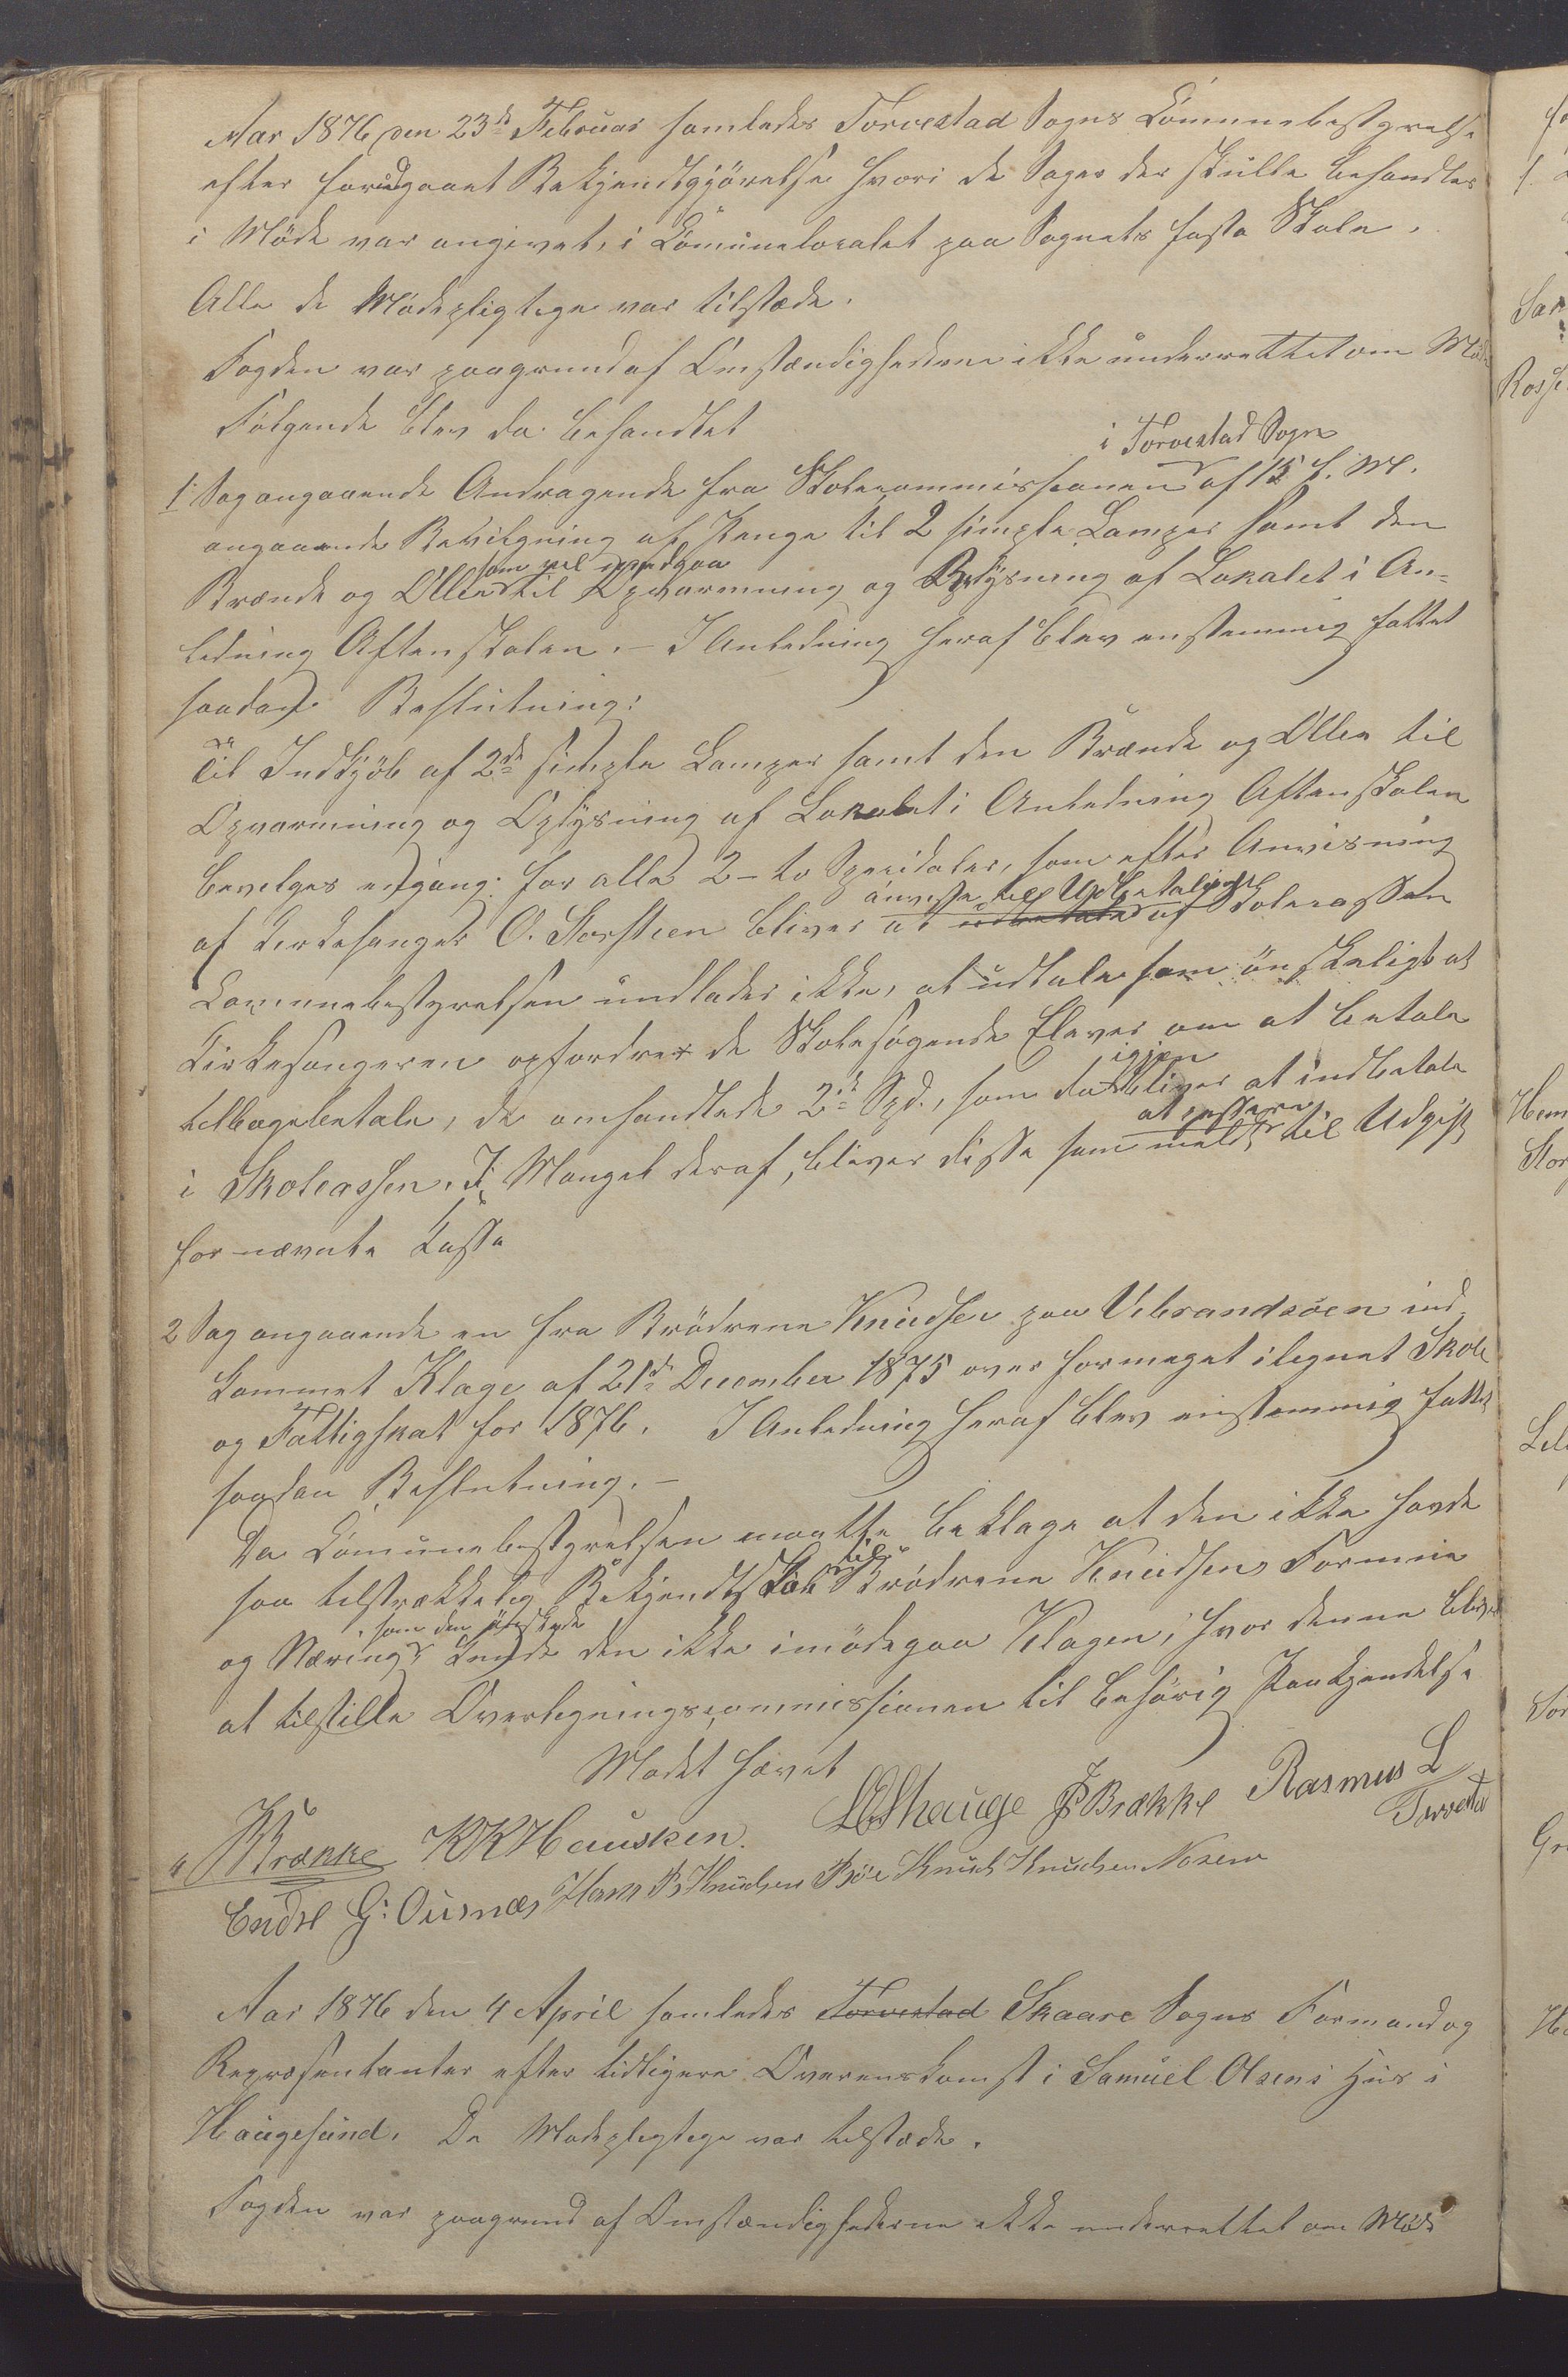 Aar 1876 den 23de Februar samledes Torvestad Sogns Communebestyrelse
efter forudgaaet Bekjendtgjörelse hvori de Sager der skulle behandles
i Möde var angivet, i Communelocalet paa Sognets faste Skole.
Alle de Mödepligtige var tilstæde.
Fogden var paagrund af Omstændighederne ikke underrettet om Möde
Følgende blev da behandlet
i Torvestad Sogn
1 Sag angaaende Andragende fra Skolecommissionen af 15 f. M.
angaaende Bevilgning af Penge til 2 simple Lamper samt den
som vil medgaa
Brænde og Ollie til Opvarmning og Oplysning af Lokalet i An-
ledning Aftenskolen. – I Anledning heraf blev enstemmig fattet
saadan Beslutning:
Til Indkjöb af 2de simple Lamper samt den Brænde og Ollie til
Opvarmning og Oplysning af Lokalet i Anledning Aftenskolen
bevilges engang for alle 2 – to Specidaler, som efter Anvisning
anvise til Udbetaling
af Kirkesanger O. Storsteen bliver at udbetale af Skolecassen
Communebestyrelsen undlader ikke, at udtale som önskeligt at
Kirkesangeren opfordrer de Skolesøgende Elever om at betale
igjen
tilbagebetale, de omhandlede 2de Spd., som da bliver at indbetale
at passere
i Skolecassen. I Mangel deraf, bliver disse som meldt til Udgift
for nævnte Kasse
2 Sag angaaende en fra Brödrene Knudsen paa Vibrandsöen ind-
kommet Klage af 21de December 1875 over formeget ilignet Skole
og Fattigskat for 1876. I Anledning heraf blev enstemmig fattet
saadan Beslutning. –
Da Communebestyrelsen maatte beklage at den ikke havde
til
saa tilstrækkelig Bekjendtskab Brödrene Knudsens Formue
, som den önskede
og Næring, kunde den ikke imödegaa Klagen, hvor denne bliver
at tilstille Overligningscommissionen til behörig Paakjendelse
Mødet hævet
Brække KKHausken. LOShauge JSBrække Rasmus L
Torvestad
Endre G: Ousnæs Hans B Knudsen Böe Knud Knudsen Nosem
Aar 1876 den 4 April samledes Torvestad Skaare Sogns Formand og
Repræsentanter efter tidligere Overenskomst i Samuel Olsens Huus i
Haugesund. De Mødepligtige var tilstæde.
Fogden var paagrund af Omstændighederne ikke underrettet om Möde